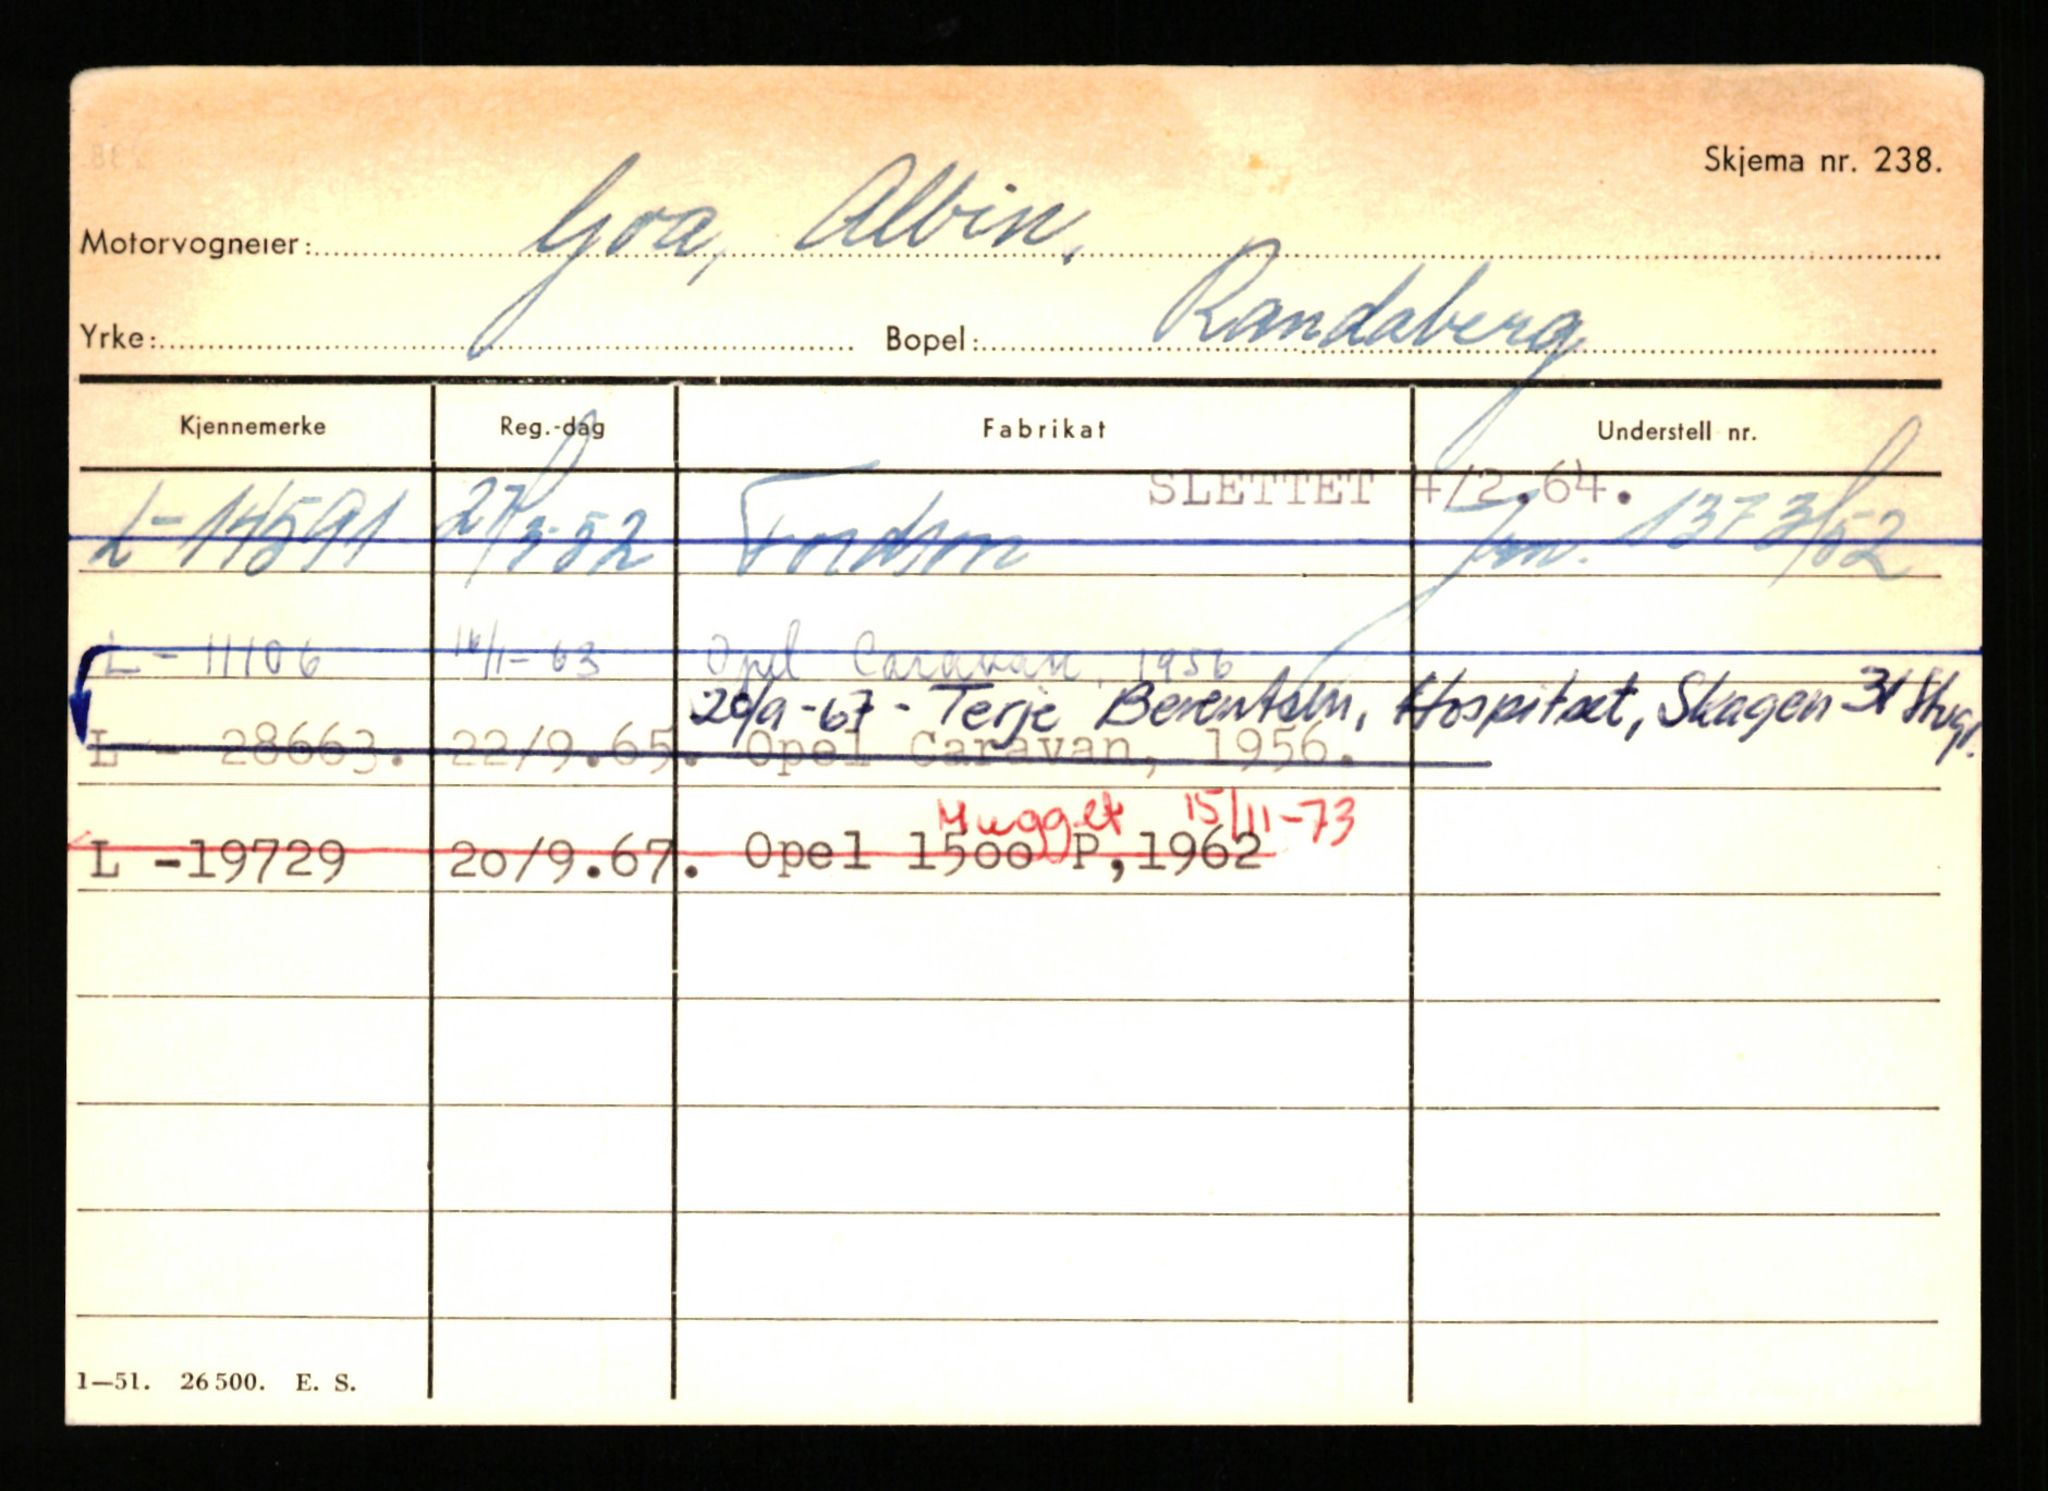 Skjema nr. 238.
Motorvogneier: Goa, Albin.
Yrke: Bopel: Randaberg
Kjennemerke Reg.-dag Fabrikat Understell nr.
SLETTET 4/2.64.
L-14591 27/3-52 Fordson Jrn. 1373/52
L - 11106 16/1-63 Opel Caravan, 1956
20/9-67 - Terje Berentsen, Hospitset, Skagen 31 Stvgr.
L - 28663. 22/9.65. Opel Caravan, 1956.
Hugget 15/11-73
L -19729 20/9.67. Opel 1500 P,1962
1—51. 26500. E. S.